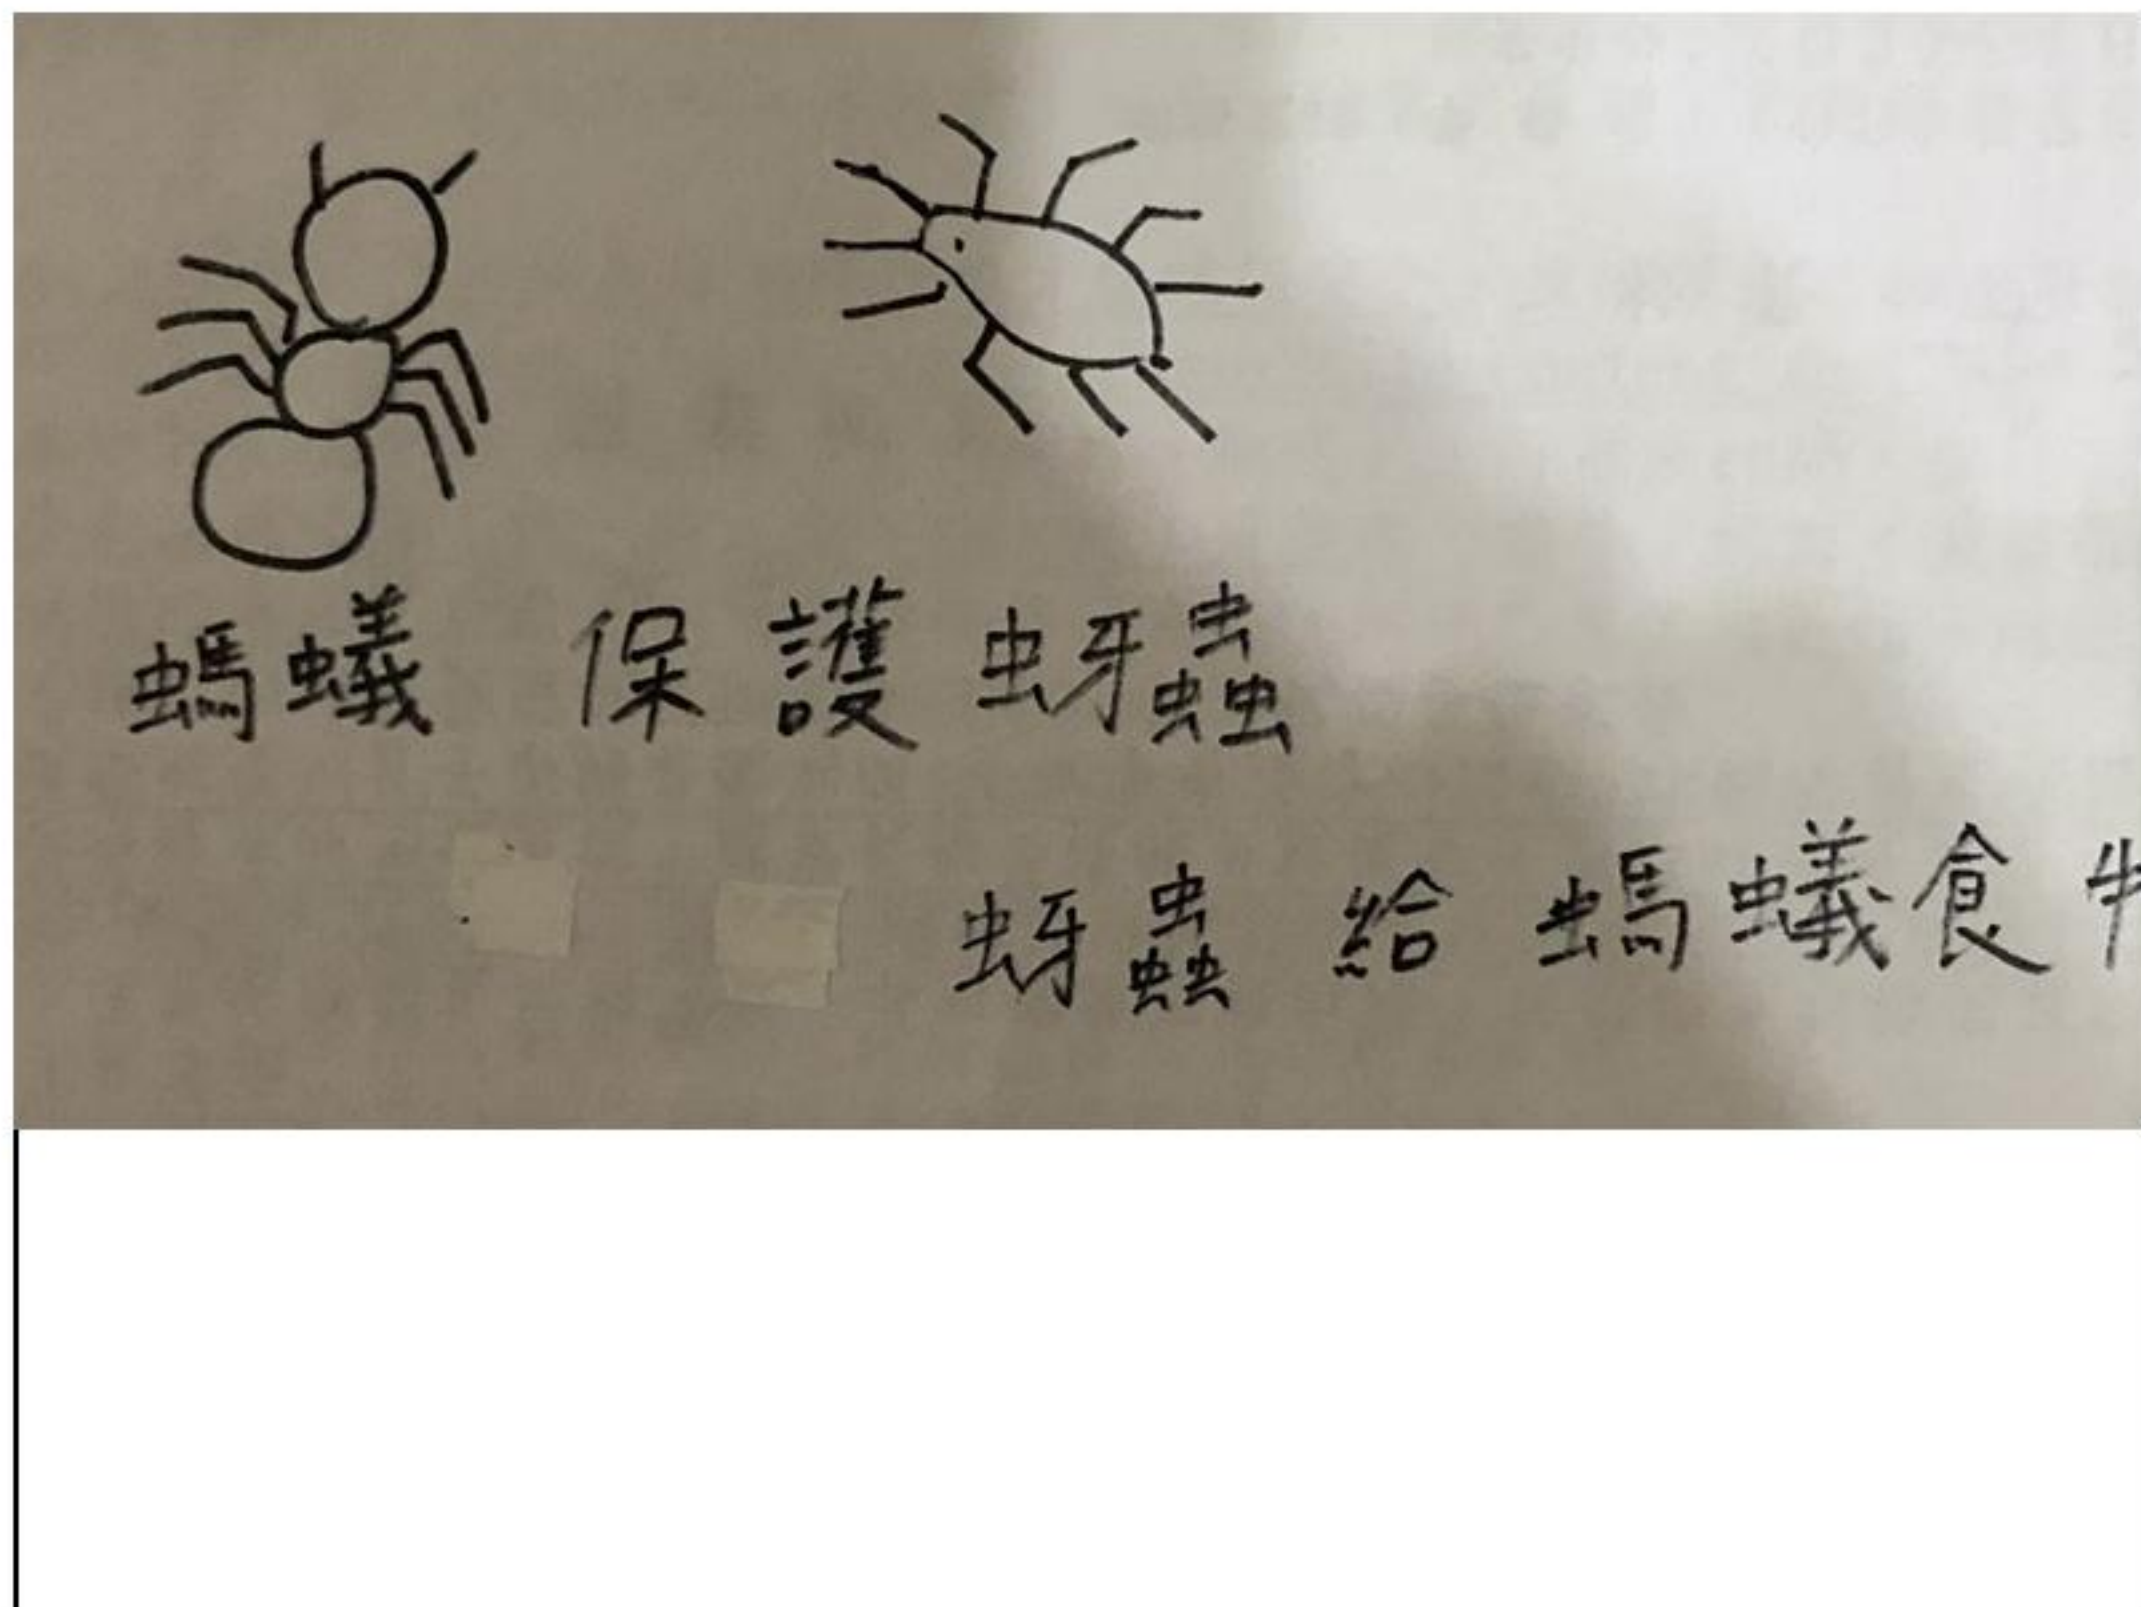 螞蟻 保護蚜蟲
蚜蟲 給 螞蟻食